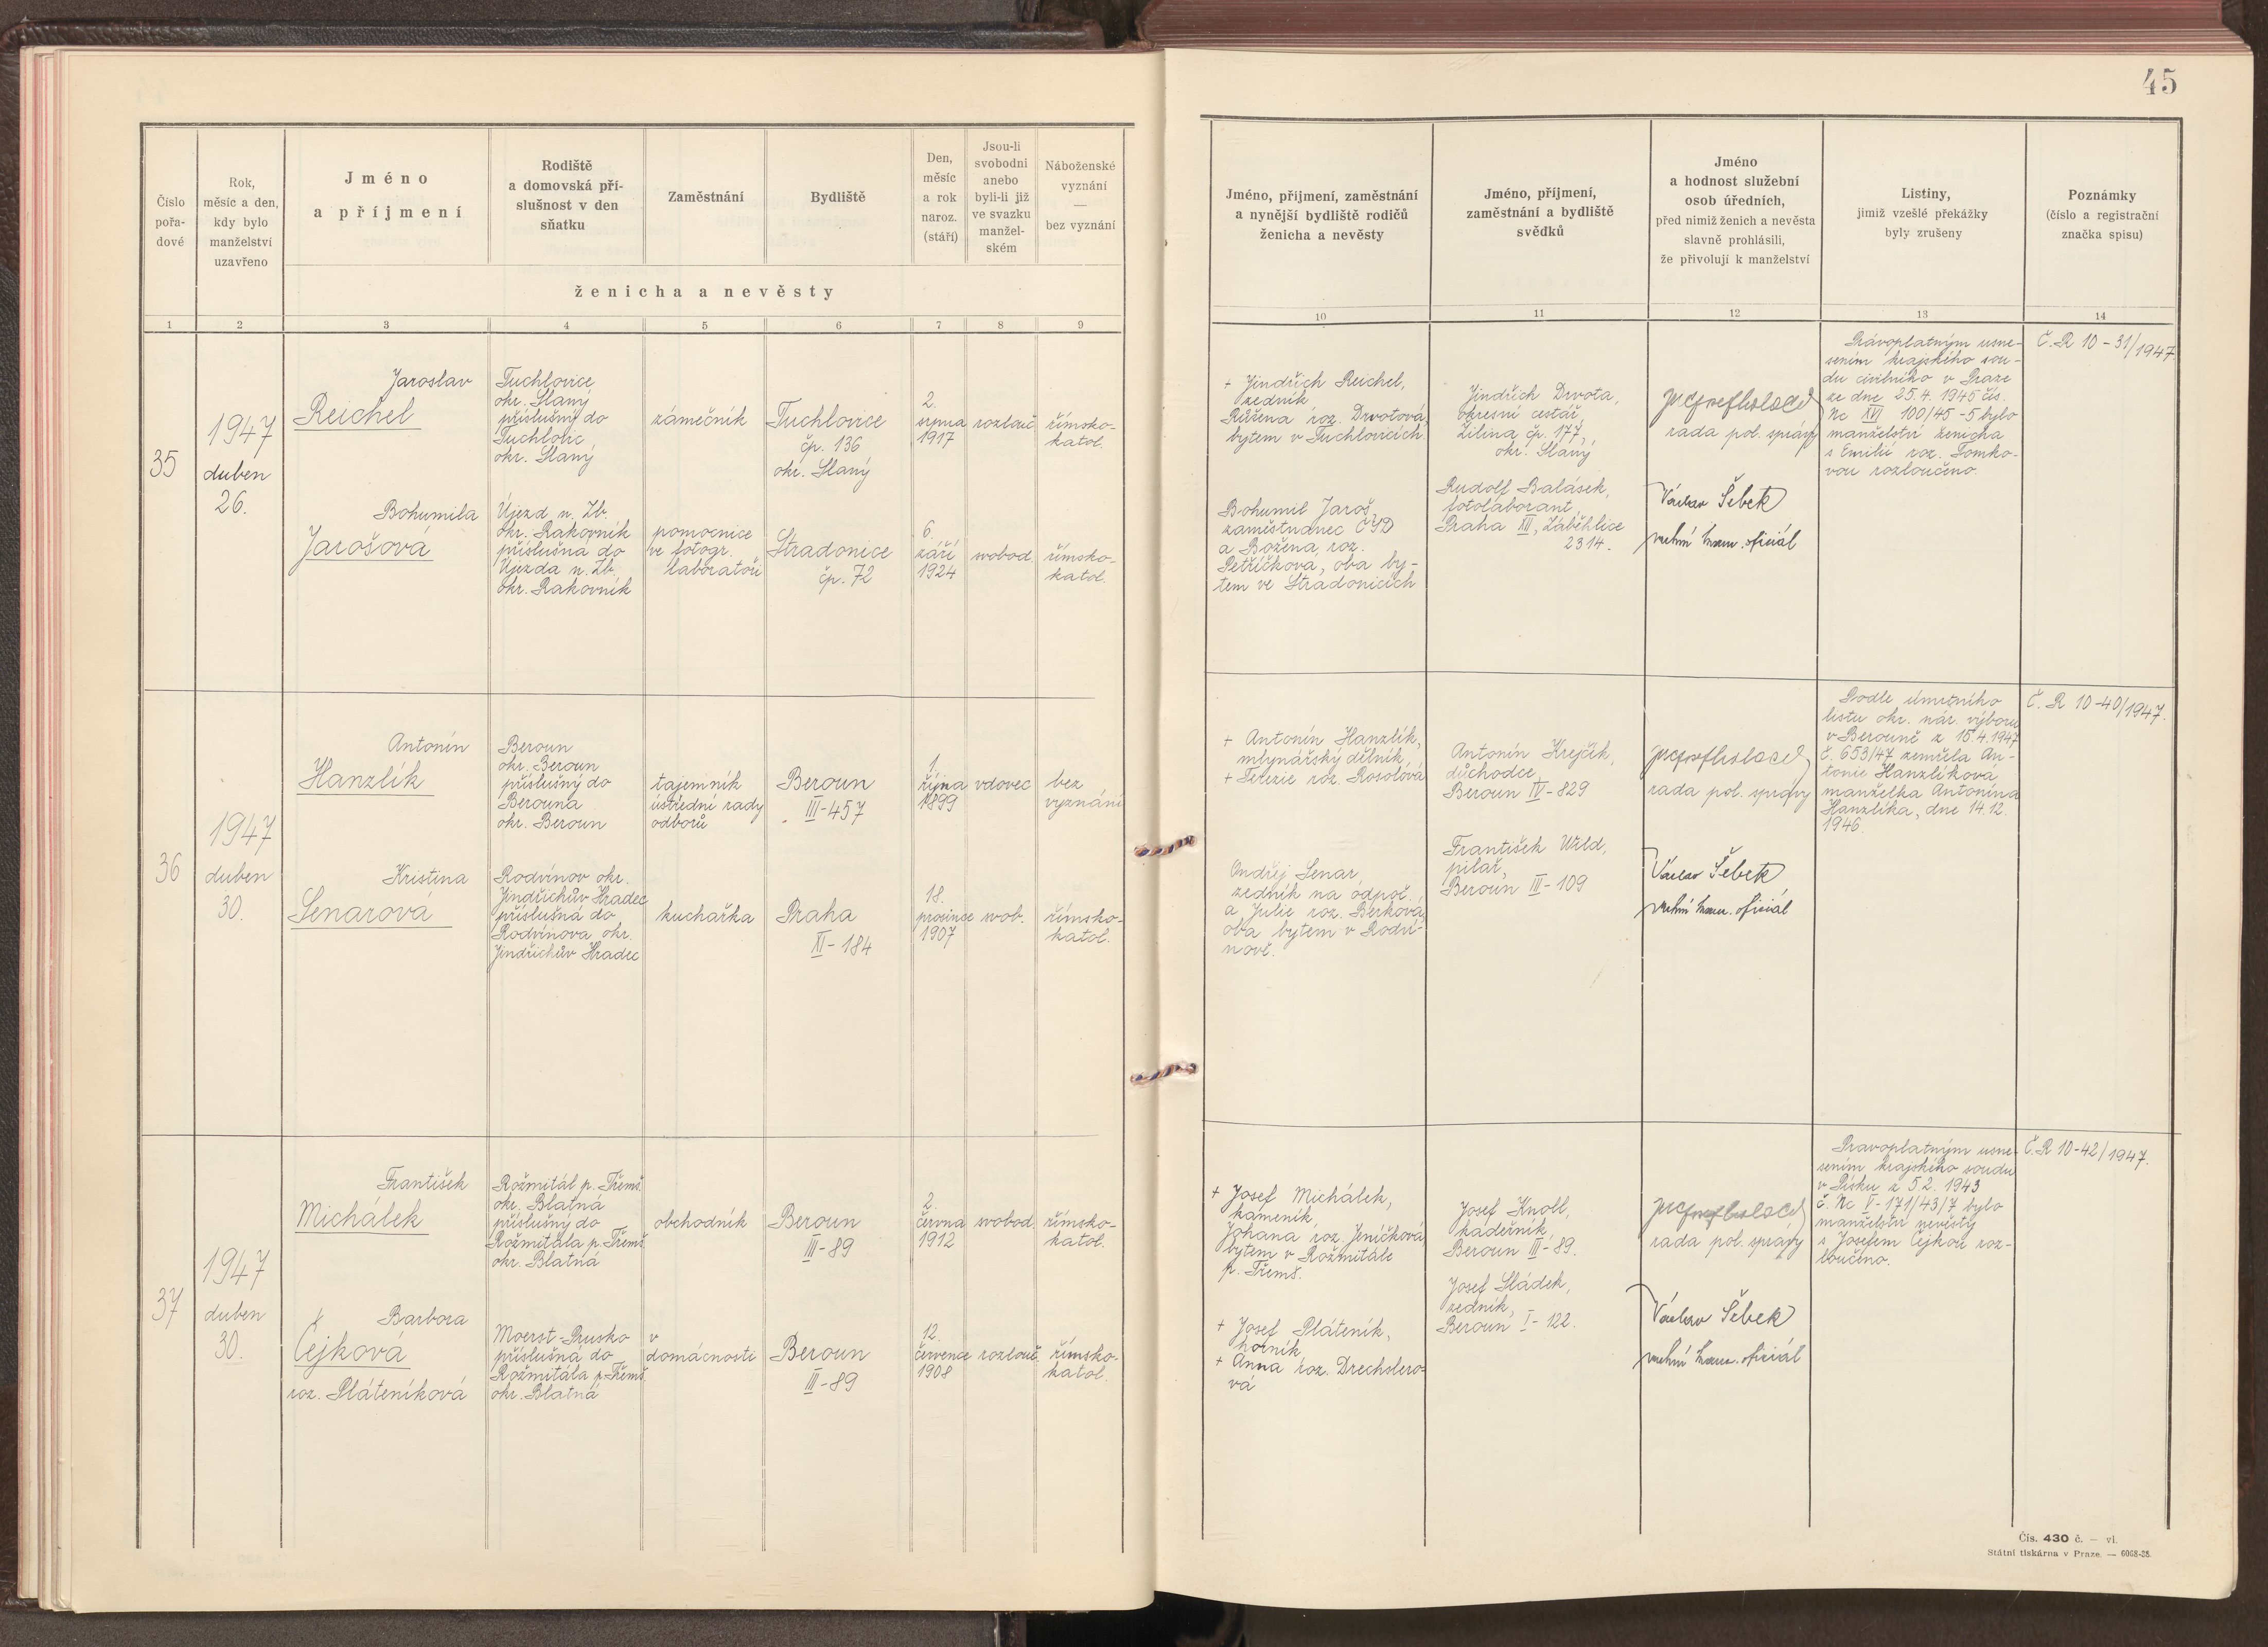 45
Číslo
pořa-
dové
Rok,
měsíc a den,
kdy bylo
manželství
uzavřeno
Jméno
a příjmení
Rodiště
a domovská pří-
slušnost v den
sňatku
Zaměstnání
Bydliště
Den,
měsíc
a rok
naroz.
(stáří)
Jsou-li
svobodni
anebo
byli-li již
ve svazku
manžel-
ském
Náboženské
vyznání
—
bez vyznání
ženicha a nevěsty
Jméno, příjmení, zaměstnání
a nynější bydliště rodičů
ženicha a nevěsty
Jméno, příjmení,
zaměstnání a bydliště
svědků
Jméno
a hodnost služební
osob úředních,
před nimiž ženich a nevěsta
slavně prohlásili,
že přivolují k manželství
Listiny,
jimiž vzešlé překážky
byly zrušeny
Poznámky
(číslo a registrační
značka spisu)
1 2 3 4 5 6 7 8 9 10 11 12 13 14
35
1947
duben
26.
Jaroslav
Reichel
Tuchlovice
okr. Slaný
příslušný do
Tuchlovic
okr. Slaný
zámečník
Tuchlovice
čp. 136
okr. Slaný
2.
srpna
1917
rozlouč.
římsko-
katol.
Bohumila
Jarošová
Újezd n. Zb.
okr. Rakovník
příslušná do
Újezda n. Zb.
okr. Rakovník
pomocnice
ve fotogr.
laboratoři
Stradonice
čp. 72
6.
září
1924
svobod.
římsko-
katol.
+ Jindřich Reichel,
zedník
Růžena roz. Drvotová,
bytem v Tuchlovicích
Bohumil Jaroš,
zaměstnanec ČSD
a Božena, roz.
Petříčková, oba by-
tem ve Stradonicích
Jindřich Drvota,
okresní cestář,
Žilina čp. 177,
okr. Slaný
Rudolf Balásek,
fotolaborant,
Praha XII, Záběhlice
2314.
rada pol. správy
Václav Šebek
vrchní kanc. oficiál
Právoplatným usne-
sením krajského sou-
du civilního v Praze
ze dne 25.4. 1945 čís.
Nc XVI 100/45-5 bylo
manželství ženicha
s Emilií roz. Tomko-
vou rozloučeno.
Č. R 10-31/1947.
36
1947
duben
30.
Antonín
Hanzlík
Beroun
okr. Beroun
příslušný do
Berouna
okr. Beroun
tajemník
ústřední rady
odborů
Beroun
III-457
1.
října
1899
vdovec
bez
vyznání
Kristina
Senarová
Rodvínov okr.
Jindřichův Hradec
příslušná do
Rodvínova okr.
Jindřichův Hradec
kuchařka
Praha
XI-184
18.
prosince
1907
svob.
římsko-
katol.
+ Antonín Hanzlík,
mlynářský dělník,
+ Terezie roz. Rosolová
Ondřej Senar,
zedník na odpoč.
a Julie roz. Berková,
oba bytem v Rodví-
nově.
Antonín Krejčík,
důchodce,
Beroun IV-829
František Wild,
pilař,
Beroun III-109
rada pol. správy
Václav Šebek
vrchní kanc. oficiál
Podle úmrtního
listu okr. nár. výboru
v Berouně z 15.4.1947
č. 653/47 zemřela An-
tonie Hanzlíková
manželka Antonína
Hanzlíka, dne 14.12.
1946.
Č. R 10-40/1947.
37
1947
duben
30.
František
Michálek
Rožmitál p. Třemš.
okr. Blatná
příslušný do
Rožmitála p. Třemš.
okr. Blatná
obchodník
Beroun
III-89
2.
června
1912
svobod.
římsko-
katol.
Barbora
Čejková
roz. Pláteníková
Moerst-Prusko
příslušná do
Rožmitála p. Třemš.
okr. Blatná
v
domácnosti
Beroun
III-89
12.
července
1908
rozlouč.
římsko-
katol.
+ Josef Michálek,
kameník,
Johana roz. Jeníčková
bytem v Rožmitále
p. Třemš.
+ Josef Pláteník,
horník
+ Anna roz. Drechslero-
vá
Josef Knoll,
kadeřník,
Beroun III-89.
Josef Sládek,
zedník,
Beroun I-122.
rada pol. správy
Václav Šebek
vrchní kanc. oficiál
Pravoplatným usne-
sením krajského soudu
v Písku z 5.2. 1943
č. Nc V-171/43/7 bylo
manželství nevěsty
s Josefem Čejkou roz-
loučeno.
Č. R 10-42/1947.
Čís. 430 č. — vl.
Státní tiskárna v Praze. — 6068-38.